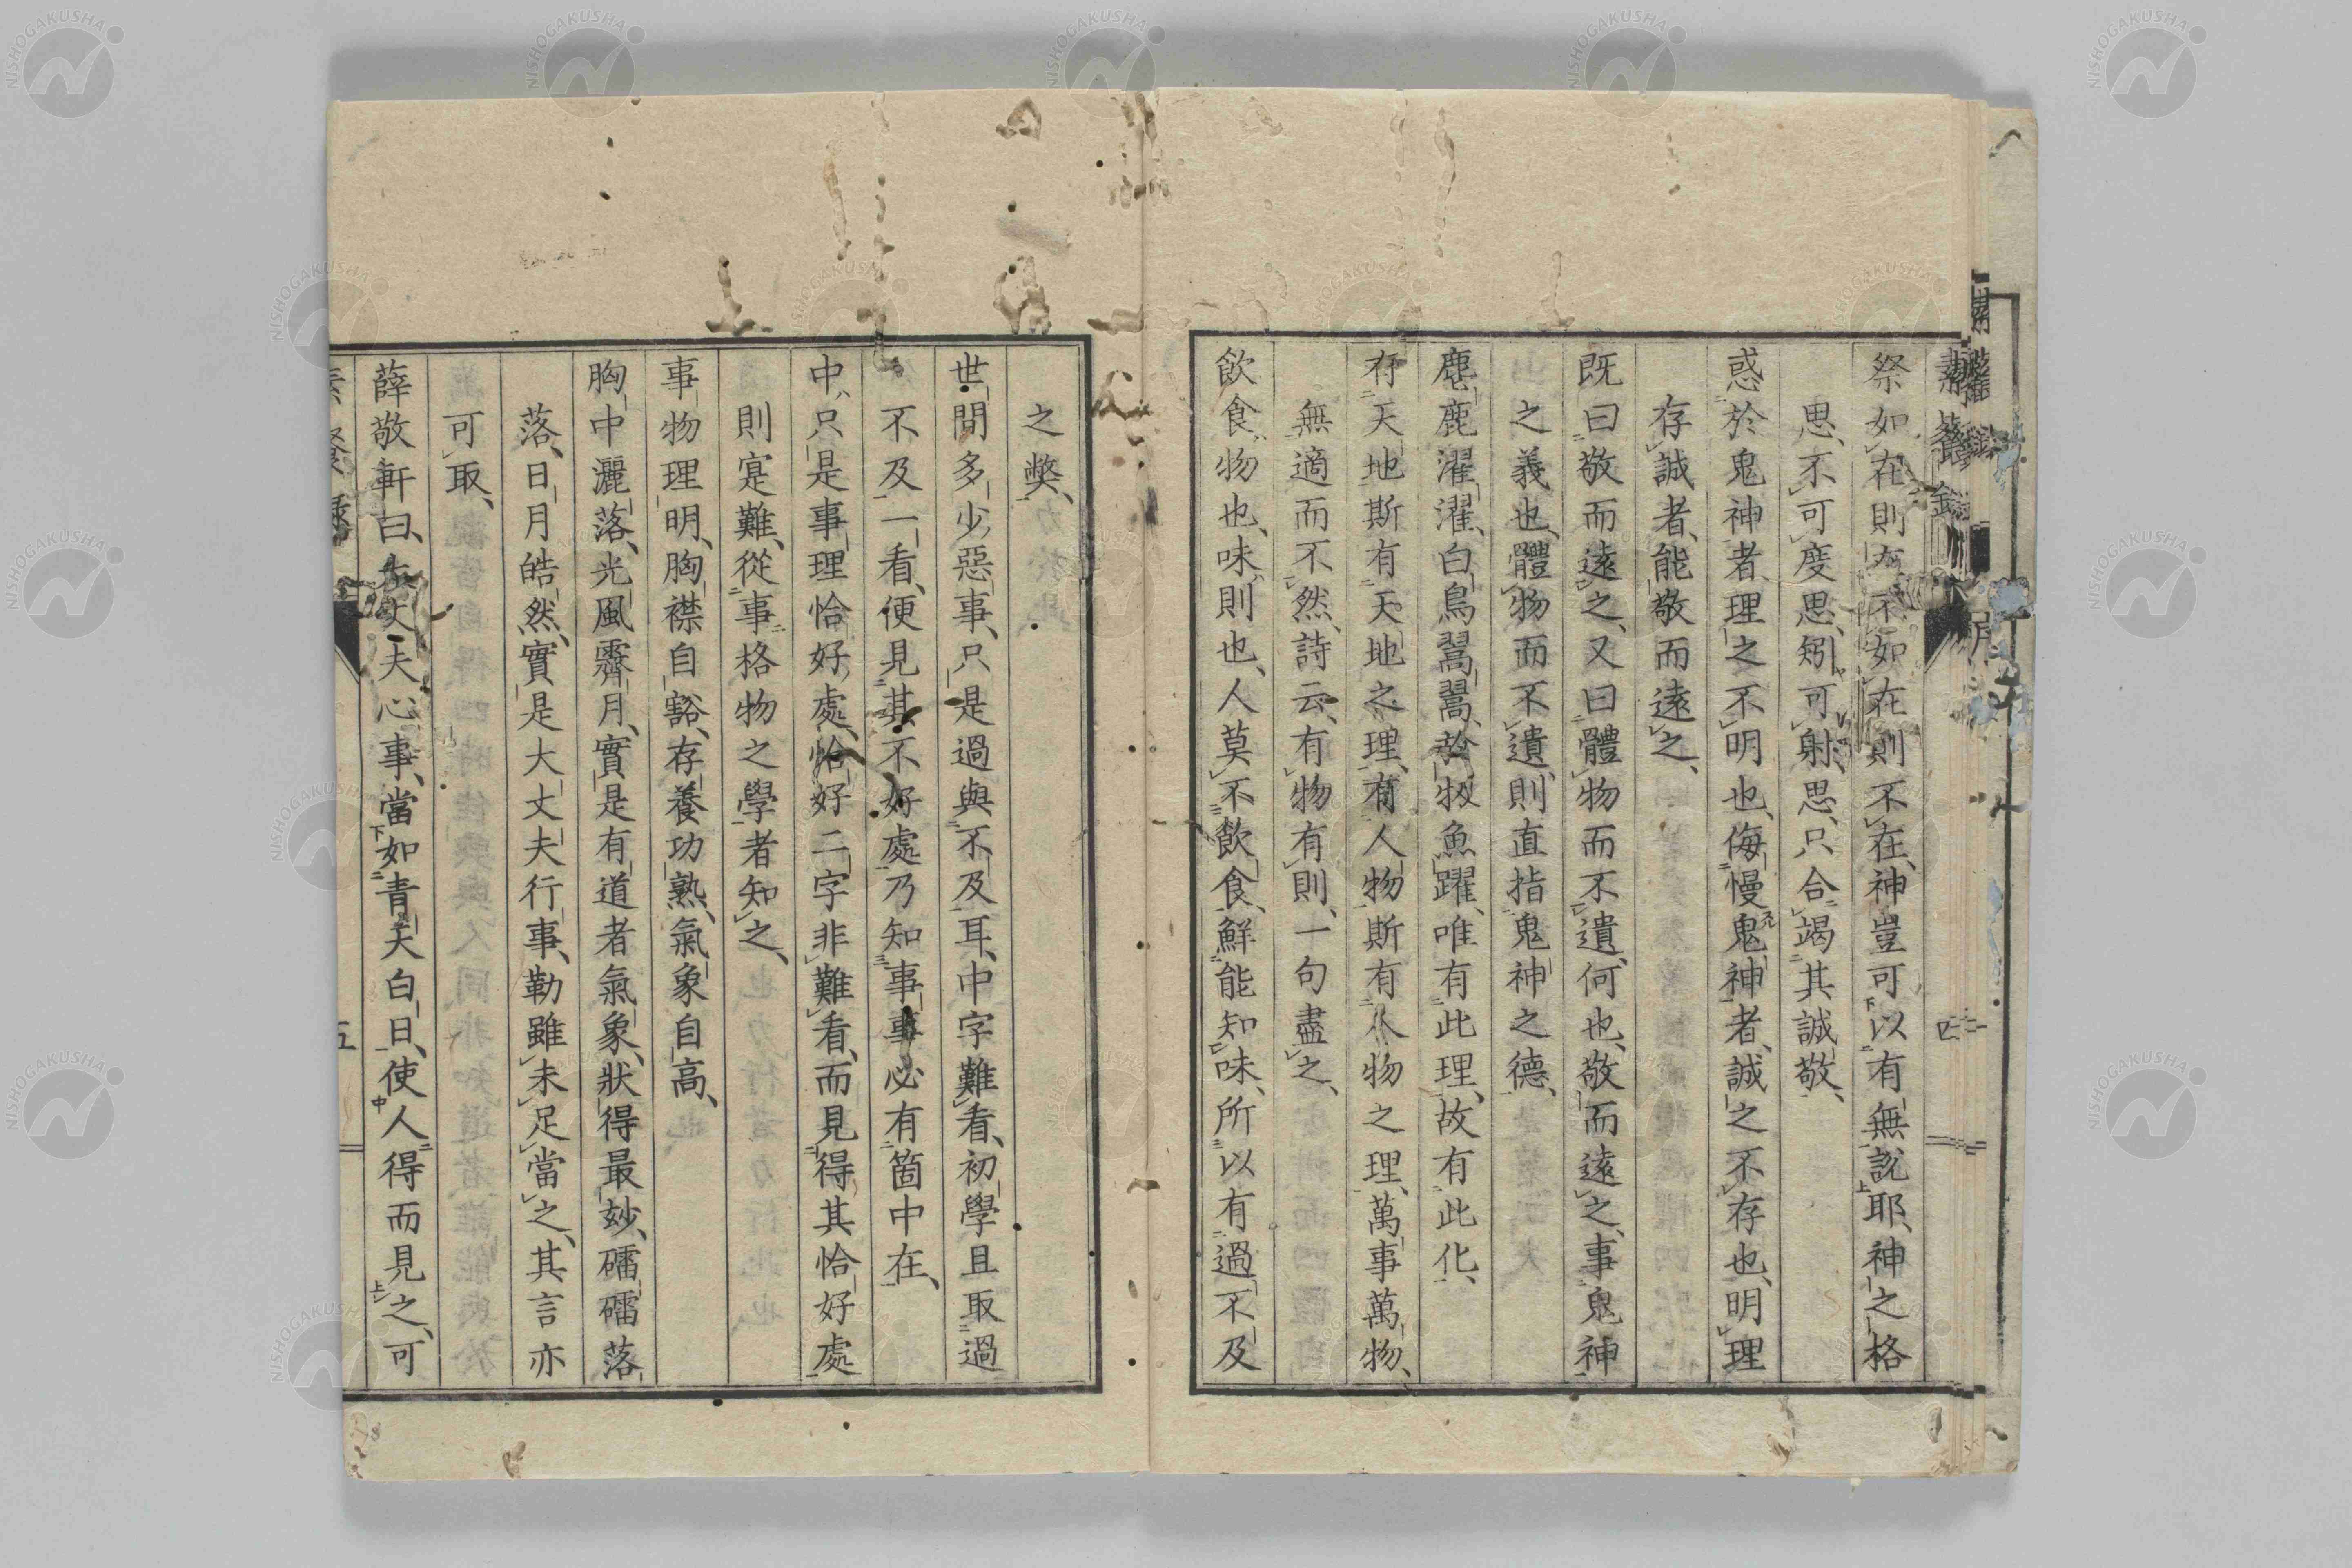 祭如在則有不如在則不在、神豈可以有無說耶、神之格
思、不可度思、矧可射思、只合竭其誠敬、
惑於鬼神者、理之不明也、侮慢鬼神者、誠之不存也、明理
存誠者、能敬而遠之、
既曰敬而遠之、又曰體物而不遺、何也、敬而遠之、事鬼神
之義也、體物而不遺、則直指鬼神之德、
麀鹿濯濯、白鳥翯翯、於牣魚躍、唯有此理、故有此化、
有天地斯有天地之理、有人物斯有人物之理、萬事萬物、
無適而不然、詩云、有物有則、一句盡之、
飲食物也、味則也、人莫不飲食、鮮能知味、所以有過不及
之獘、
世間多少惡事、只是過與不及耳、中字難看、初學且取過
不及一看、便見其不好處、乃知事事必有箇中在、
中、只是事理恰好處、恰好二字非難看、而見得其恰好處
則寔難、從事格物之學者知之、
事物理明、胸襟自豁、存養功熟、氣象自高、
胸中灑落、光風霽月、實是有道者氣象、狀得最妙、礌礌落
落、日月皓然、實是大丈夫行事、勒雖未足當之、其言亦
可取、
薛敬軒曰、大丈夫心事、當如青天白日、使人得而見之、可
四
五
NISHOGAKUSHA